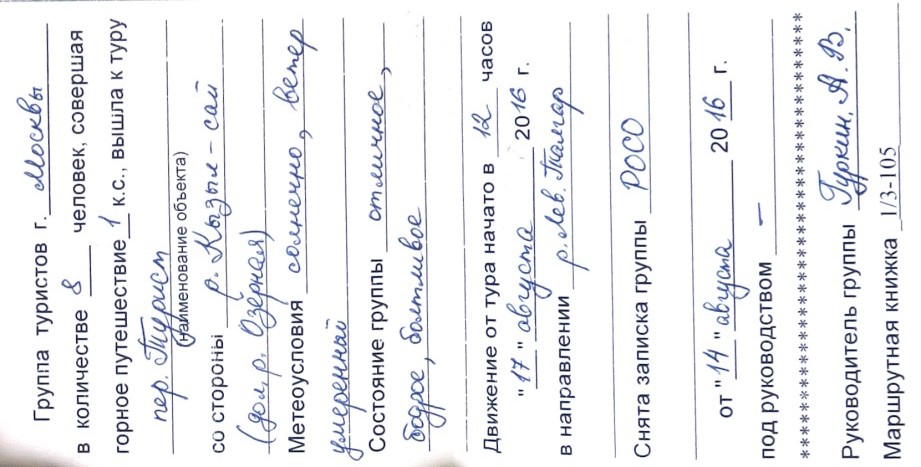 Группа туристов г. Москвы
в количестве 8 человек, совершая
горное путешествие 1 к.с., вышла к туру
пер. Турист
(наименование объекта)
со стороны р. Кызыл-сай
(дол. р. Озёрная)
Метеоусловия солнечно, ветер
умеренный
Состояние группы отличное,
бодрое, болтливое
Движение от тура начато в 12 часов
"17" августа 2016 г.
в направлении р. Лев. Талгар
Снята записка группы РОСО
от "14" августа 2016 г.
под руководством —
****************************************
Руководитель группы Гуркин, А. В.
Маршрутная книжка 1/3-105